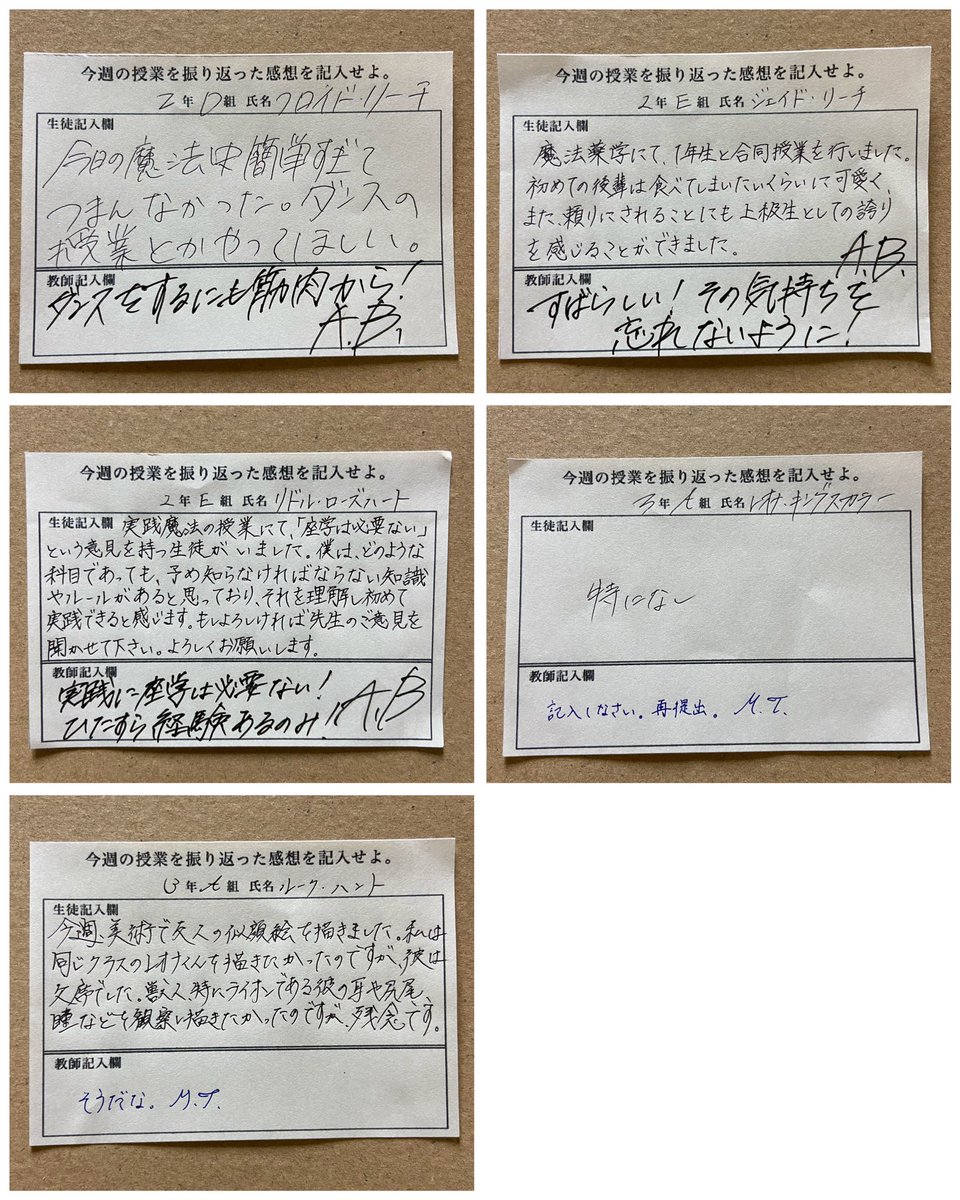 今週の授業を振り返った感想を記入せよ。
2年D組 氏名 フロイド・リーチ
生徒記入欄
今日の魔法史簡単すぎて
つまんなかった。ダンスの
授業とかやってほしい。
教師記入欄
ダンスをするにも筋肉から!
A.B.
今週の授業を振り返った感想を記入せよ。
2年E組 氏名 ジェイド・リーチ
生徒記入欄
魔法薬学にて、1年生と合同授業を行いました。
初めての後輩は食べてしまいたいくらいに可愛く、
また、頼りにされることにも上級生としての誇り
を感じることができました。
A.B.
教師記入欄
すばらしい!その気持ちを
忘れないように!
今週の授業を振り返った感想を記入せよ。
2年E組 氏名 リドル・ローズハート
生徒記入欄 実践魔法の授業にて、「座学は必要ない」
という意見を持つ生徒がいました。僕は、どのような
科目であっても、予め知らなければならない知識
やルールがあると思っており、それを理解し初めて
実践できると感じます。もしよろしければ先生のご意見を
聞かせて下さい。よろしくお願いします。
教師記入欄
実践に座学は必要ない!
ひたすら経験あるのみ!! A.B
今週の授業を振り返った感想を記入せよ。
3年A組 氏名 レオナ・キングスカラー
生徒記入欄
特になし
教師記入欄
記入しなさい。再提出。 M.T.
今週の授業を振り返った感想を記入せよ。
3年A組 氏名 ルーク・ハント
生徒記入欄
今週、美術で友人の似顔絵を描きました。私は
同じクラスのレオナくんを描きたかったのですが、彼は
欠席でした。獣人、特にライオンである彼の耳や尻尾、
瞳などを観察し描きたかったのですが、残念です。
教師記入欄
そうだな。 M.T.